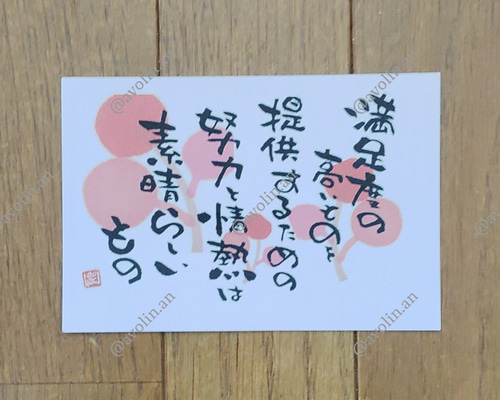 満足度の
高いものを
提供するための
努力と情熱は
素晴らしい
もの
@avolin.an
@avolin.an
@avolin.an
@avolin.an
@avolin.an
@avolin.an